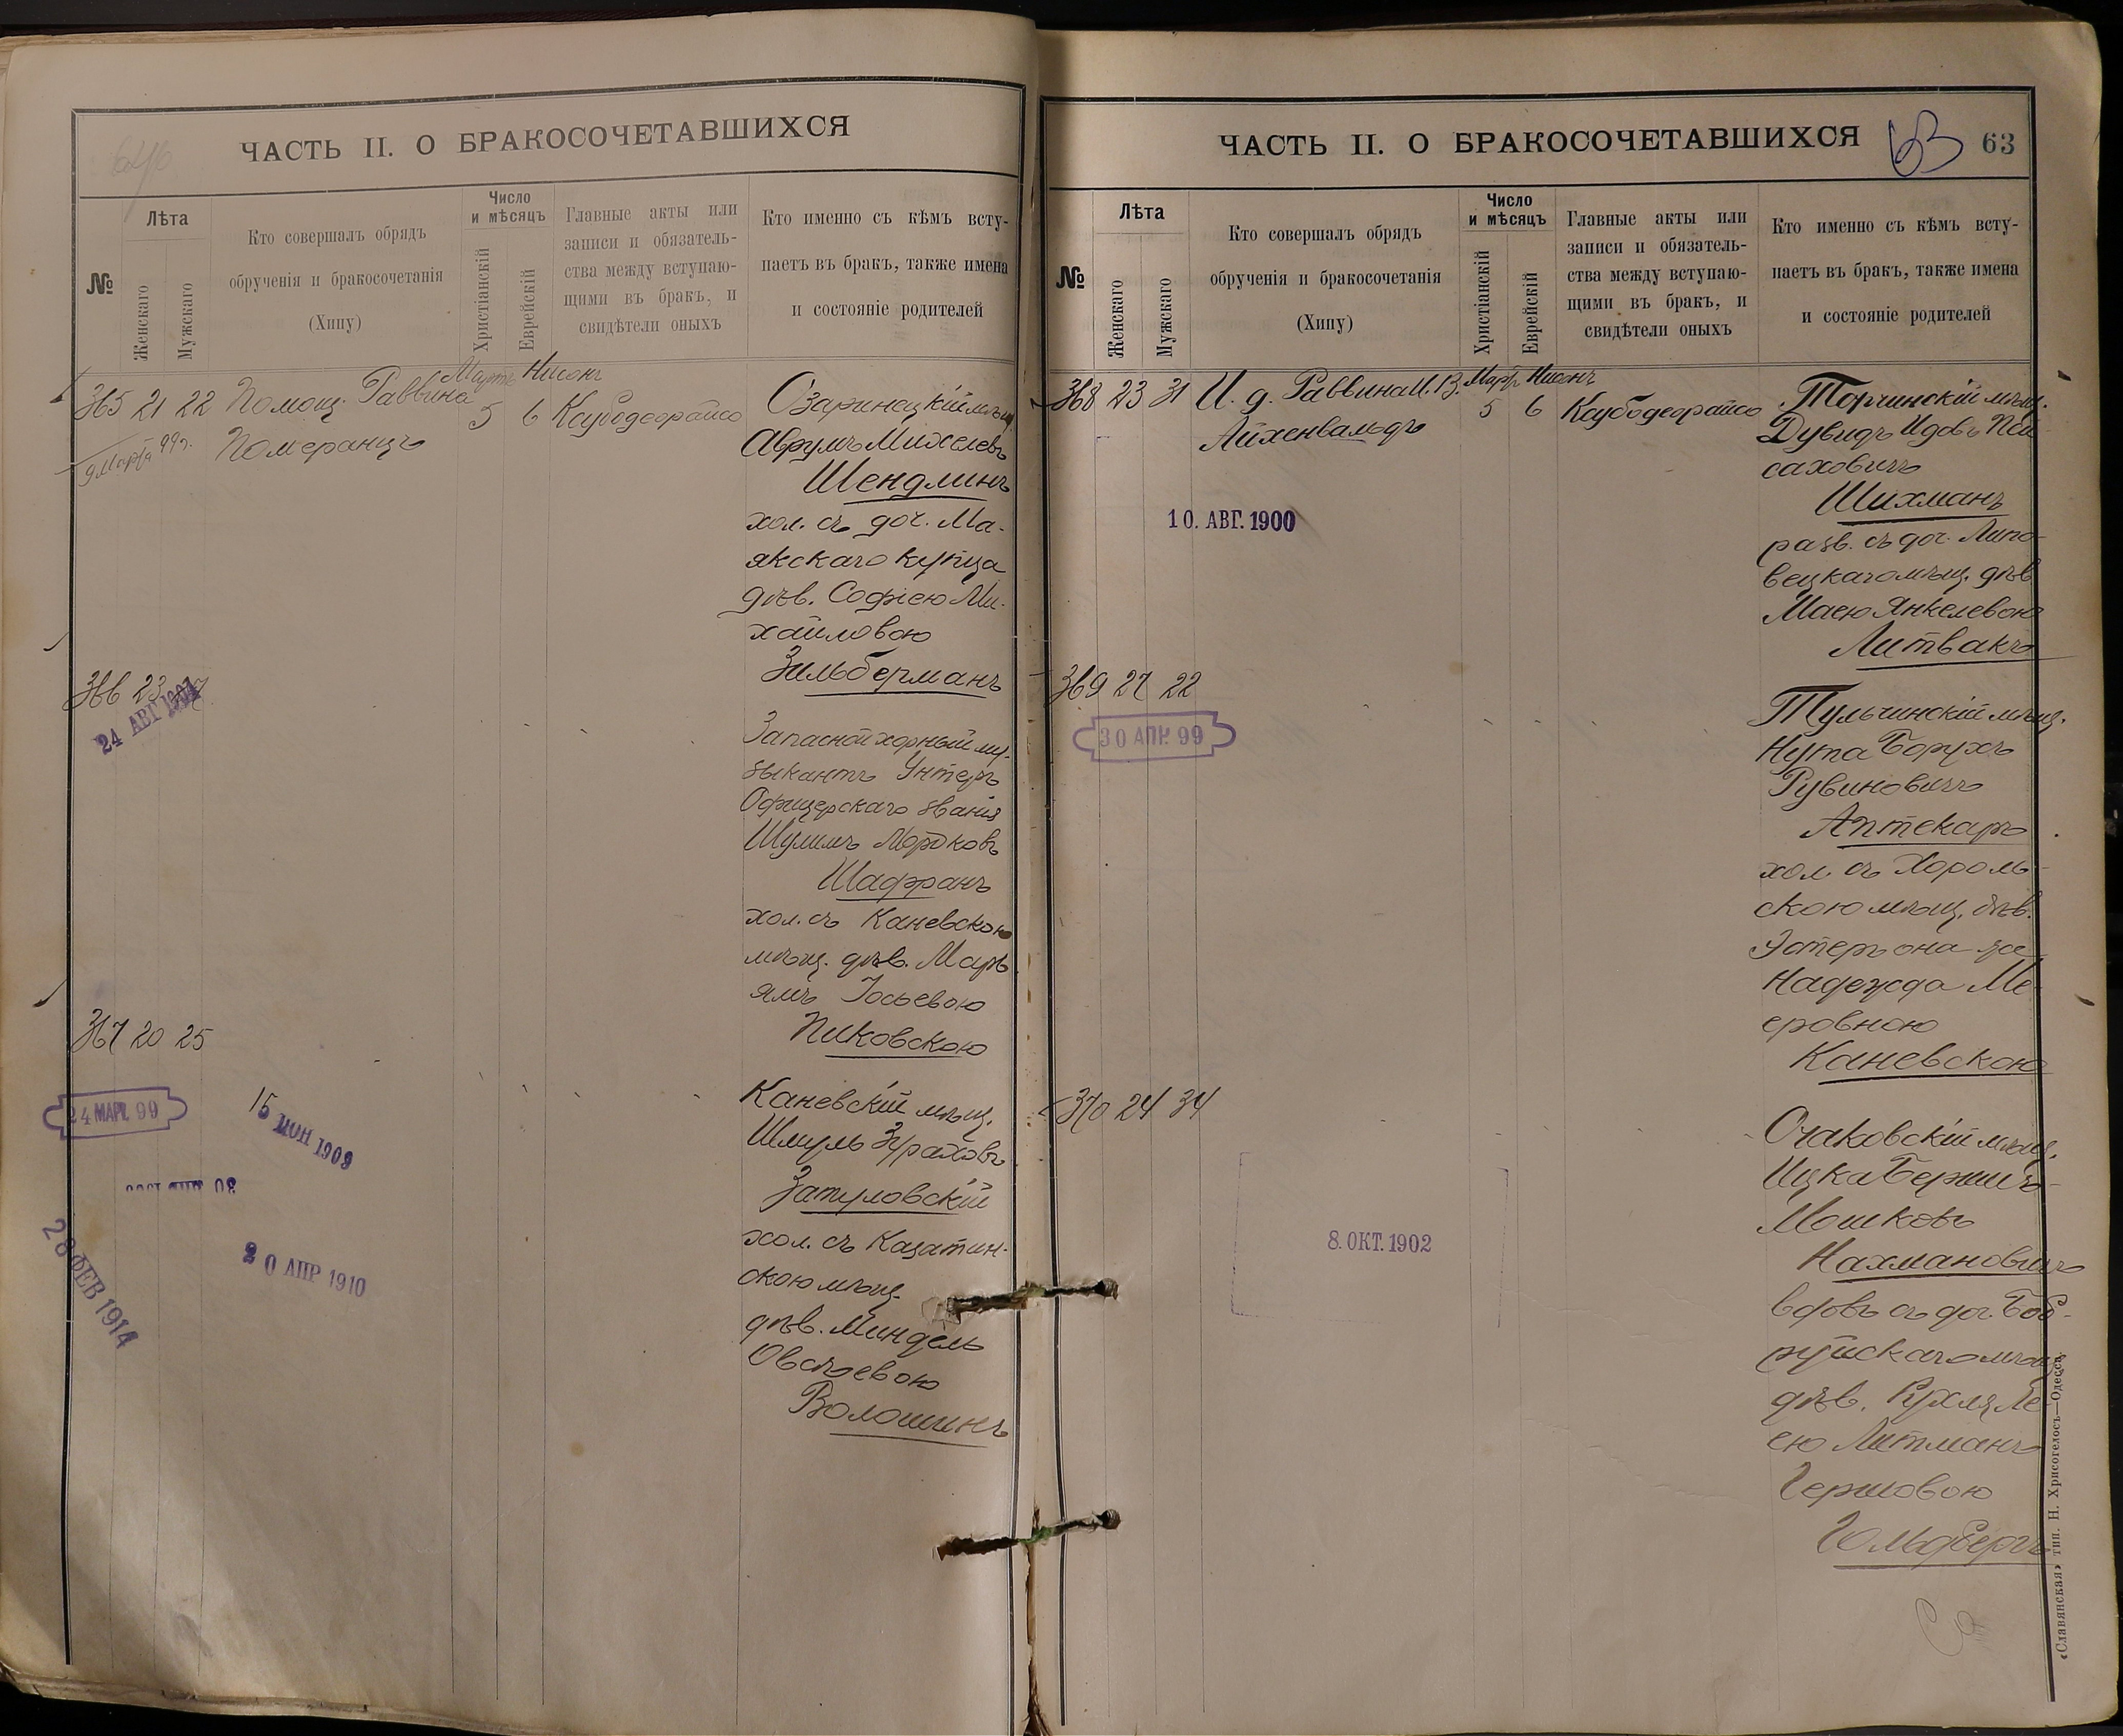 ЧАСТЬ II. О БРАКОСОЧЕТАВШИХСЯ
№
Лѣта
Женскаго
Мужскаго
Кто совершалъ обрядъ
обрученія и бракосочетанія
(Хипу)
Число
и мѣсяцъ
Христіанскій
Еврейскій
Главные акты или
записи и обязатель-
ства между вступаю-
щими въ бракъ, и
свидѣтели оныхъ
Кто именно съ кѣмъ всту-
паетъ въ бракъ, также имена
и состояніе родителей
Мартъ Нисонъ
365 21 22 Помощ. Раввина 5 6 Каубодеорайсо
Померанцъ
9 Марта 99 г.
Озаринецкій мѣщ.
Аврумъ Михелевъ
Шендлинъ
хол. съ доч. Ма-
якскаго купца
дѣв. Софіею Ми-
хайловою
Зильберманъ
366 23
24 АВГ
Запасной хорный му-
зыкантъ Унтеръ
Офицерскаго званія
Шулимъ Мордковъ
Шафранъ
хол. съ Каневскою
мѣщ. дѣв. Марь-
ямъ Іосьевою
Пиковскою
367 20 25
24 МАР. 99
15 ИЮН 1909
28 ФЕВ 1914
20 АПР 1910
Каневскій мѣщ.
Шмуль Зураховъ
Затуловскій
хол. съ Казатин-
скою мѣщ.
дѣв. Миндель
Овсѣевою
Волошинъ
ЧАСТЬ II. О БРАКОСОЧЕТАВШИХСЯ
63
63
№
Лѣта
Женскаго
Мужскаго
Кто совершалъ обрядъ
обрученія и бракосочетанія
(Хипу)
Число
и мѣсяцъ
Христіанскій
Еврейскій
Главные акты или
записи и обязатель-
ства между вступаю-
щими въ бракъ, и
свидѣтели оныхъ
Кто именно съ кѣмъ всту-
паетъ въ бракъ, также имена
и состояніе родителей
Мартъ Нисонъ
368 23 31 И. д. Раввина И. В. 5 6 Каубодеорайсо
Айхенвальдъ
10. АВГ. 1900
Торчинскій мѣщ.
Дувидъ Идовъ Пей-
саховичъ
Шихманъ
разв. съ доч. Липо-
вецкаго мѣщ. дѣв.
Маею Янкелевою
Литвакъ
369 27 22
30 АПР. 99
Тульчинскій мѣщ.
Нута Борухъ
Рувиновичъ
Аптекаръ
хол. съ Хороль-
скою мѣщ. дѣв.
Эстеръ она же
Надежда Ме-
еровною
Каневскою
370 24 34
8. ОКТ. 1902
Очаковскій мѣщ.
Ицка Бершъ
Мошковъ
Нахмановичъ
вдовъ съ доч. Боб-
руйскаго мѣщ.
дѣв. Рухля Ле-
ею Литманъ
Гершовою
Гольдбергъ
«Славянская» тип. Н. Хрисогелосъ—Одесса.